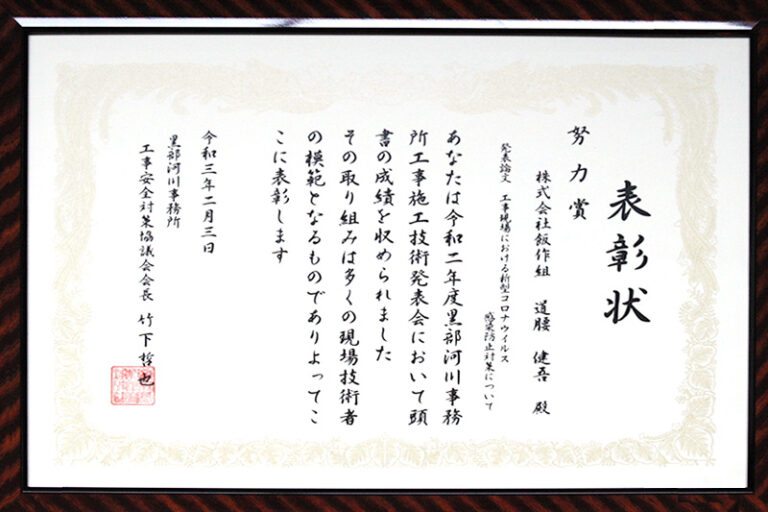 表彰状
努力賞
株式会社飯作組 道腰 健吾 殿
発表論文 工事現場における新型コロナウイルス
感染防止対策について
あなたは令和二年度黒部河川事務
所工事施工技術発表会において頭
書の成績を収められました
その取り組みは多くの現場技術者
の模範となるものでありよってこ
こに表彰します
令和三年二月三日
黒部河川事務所
工事安全対策協議会会長 竹下哲也